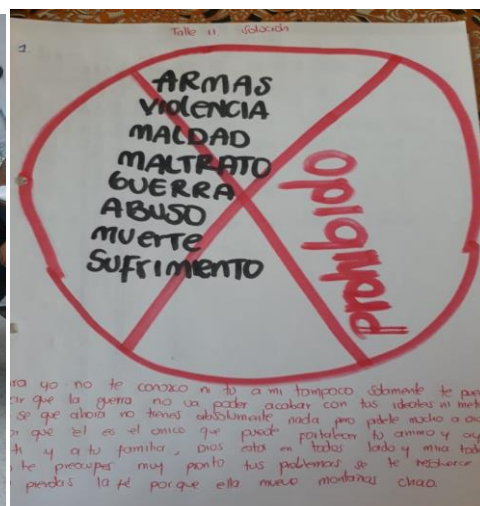 Talle 11. Solución
1.
ARMAS
VIOLENCIA
MALDAD
MALTRATO
GUERRA
ABUSO
MUERTE
SUFRIMIENTO
Prohibido
ra yo no te conozco ni tu a mi tampoco solamente te pue
que la guerra no va poder acabar con tus ideales ni met
se que ahora no tienes absolutamente nada pero pidele mucho a
que el es el unico que puede fortalecer tu animo y
y a tu familia, Dios esta en todos lado y mira tod
te preocupes muy pronto tus problemas se te
pierdas la fé porque ella mueve montañas chao.